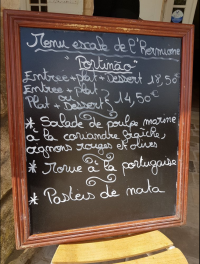 Menu escale de l'Hermione
"Portimão"
Entrée + plat + Dessert 18,50€
Entrée + plat
Plat + Dessert } 14,50€
* Salade de poulpe marine
à la coriandre fraîche,
oignons rouges et olives
* Morue à la portugaise
* Pasteis de nata